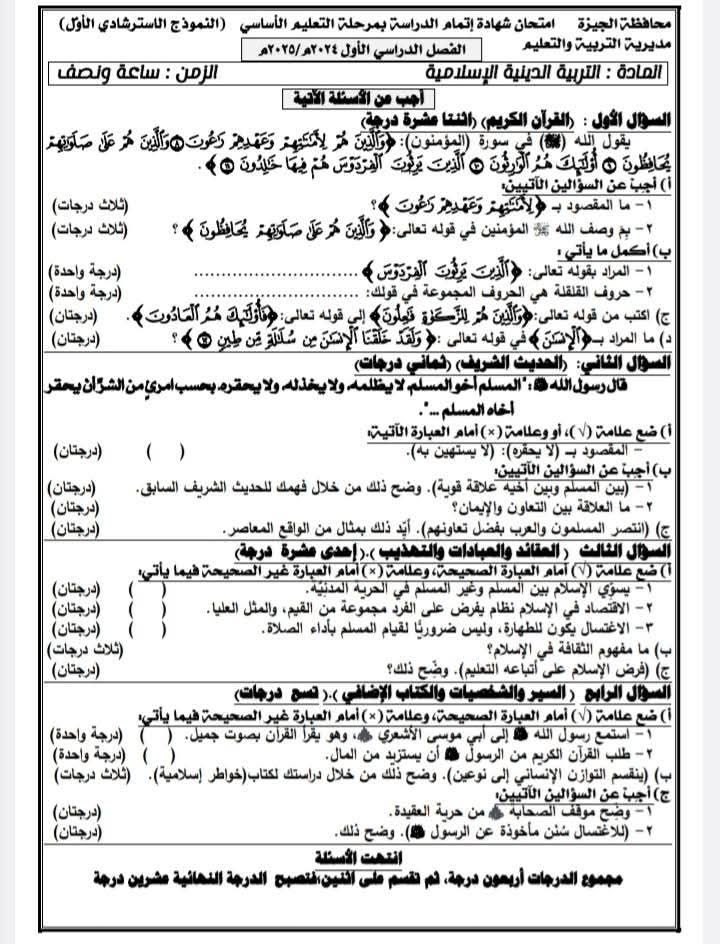 محافظة الجيزة امتحان شهادة إتمام الدراسة بمرحلة التعليم الأساسي (النموذج الاسترشادي الأول)
مديرية التربية والتعليم الفصل الدراسي الأول ٢٠٢٤م/٢٠٢٥م
المادة : التربية الدينية الإسلامية الزمن : ساعة ونصف
أجب عن الأسئلة الآتية
السؤال الأول : (القرآن الكريم) (اثنتا عشرة درجة)
يقول الله (ﷻ) في سورة (المؤمنون): ﴿وَالَّذِينَ هُمْ لِأَمَانَاتِهِمْ وَعَهْدِهِمْ رَاعُونَ ٨ وَالَّذِينَ هُمْ عَلَى صَلَوَاتِهِمْ
يُحَافِظُونَ ٩ أُولَٰئِكَ هُمُ الْوَارِثُونَ ١٠ الَّذِينَ يَرِثُونَ الْفِرْدَوْسَ هُمْ فِيهَا خَالِدُونَ ١١﴾.
أ) أجب عن السؤالين الآتيين:
١- ما المقصود بـ ﴿لِأَمَانَاتِهِمْ وَعَهْدِهِمْ رَاعُونَ﴾؟ (ثلاث درجات)
٢- بم وصف الله ﷻ المؤمنين في قوله تعالى: ﴿وَالَّذِينَ هُمْ عَلَى صَلَوَاتِهِمْ يُحَافِظُونَ﴾؟ (ثلاث درجات)
ب) أكمل ما يأتي:
١- المراد بقوله تعالى: ﴿الَّذِينَ يَرِثُونَ الْفِرْدَوْسَ﴾ .............................. (درجة واحدة)
٢- حروف القلقلة هي الحروف المجموعة في قولك: .............................. (درجة واحدة)
ج) اكتب من قوله تعالى: ﴿وَالَّذِينَ هُمْ لِلزَّكَاةِ فَاعِلُونَ﴾ إلى قوله تعالى: ﴿فَأُولَٰئِكَ هُمُ الْعَادُونَ﴾. (درجتان)
د) ما المراد بـ ﴿الْإِنسَانَ﴾ في قوله تعالى : ﴿وَلَقَدْ خَلَقْنَا الْإِنسَانَ مِن سُلَالَةٍ مِّن طِينٍ ١٢﴾؟ (درجتان)
السؤال الثاني: (الحديث الشريف) (ثماني درجات)
قال رسول الله ﷺ: "المسلم أخو المسلم، لا يظلمه، ولا يخذله، ولا يحقره، بحسب امرئ من الشر أن يحقر
أخاه المسلم ...".
أ) ضع علامة (√)، أو وعلامة (×) أمام العبارة الآتية:
- المقصود بـ (لا يحقره): (لا يستهين به). ( ) (درجتان)
ب) أجب عن السؤالين الآتيين:
١- (بين المسلم وبين أخيه علاقة قوية). وضح ذلك من خلال فهمك للحديث الشريف السابق. (درجتان)
٢- ما العلاقة بين التعاون والإيمان؟ (درجتان)
ج) (انتصر المسلمون والعرب بفضل تعاونهم). أيّد ذلك بمثال من الواقع المعاصر. (درجتان)
السؤال الثالث (العقائد والعبادات والتهذيب ).( إحدى عشرة درجة)
أ) ضع علامة (√) أمام العبارة الصحيحة، وعلامة (×) أمام العبارة غير الصحيحة فيما يأتي:
١- يسوّي الإسلام بين المسلم وغير المسلم في الحرية المدنيّة. ( ) (درجتان)
٢- الاقتصاد في الإسلام نظام يفرض على الفرد مجموعة من القيم، والمثل العليا. ( ) (درجتان)
٣- الاغتسال يكون للطهارة، وليس ضروريًّا لقيام المسلم بأداء الصلاة. ( ) (درجتان)
ب) ما مفهوم الثقافة في الإسلام؟ (ثلاث درجات)
ج) (فرض الإسلام على أتباعه التعليم). وضّح ذلك؟ (درجتان)
السؤال الرابع ( السير والشخصيات والكتاب الإضافي ).( تسع درجات)
أ) ضع علامة (√) أمام العبارة الصحيحة، وعلامة (×) أمام العبارة غير الصحيحة فيما يأتي:
١- استمع رسول الله ﷺ إلى أبي موسى الأشعري ، وهو يقرأ القرآن بصوت جميل. ( ) (درجة واحدة)
٢- طلب القرآن الكريم من الرسول ﷺ أن يستزيد من المال. ( ) (درجة واحدة)
ب) (ينقسم التوازن الإنساني إلى نوعين). وضح ذلك من خلال دراستك لكتاب(خواطر إسلامية). (ثلاث درجات)
ج) أجب عن السؤالين الآتيين:
١- وضّح موقف الصحابة من حرية العقيدة. (درجتان)
٢- (للاغتسال سُنن مأخوذة عن الرسول ﷺ). وضح ذلك. (درجتان)
انتهت الأسئلة
مجموع الدرجات أربعون درجة، ثم تقسم على اثنين،فتصبح الدرجة النهائية عشرين درجة